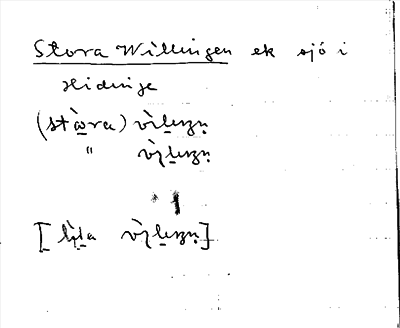 Stora Willingen ek sjó i
Hidinge
(stɷ̀ra) vìleŋṇ
" vìleŋṇ
[lìta vìleŋṇ]